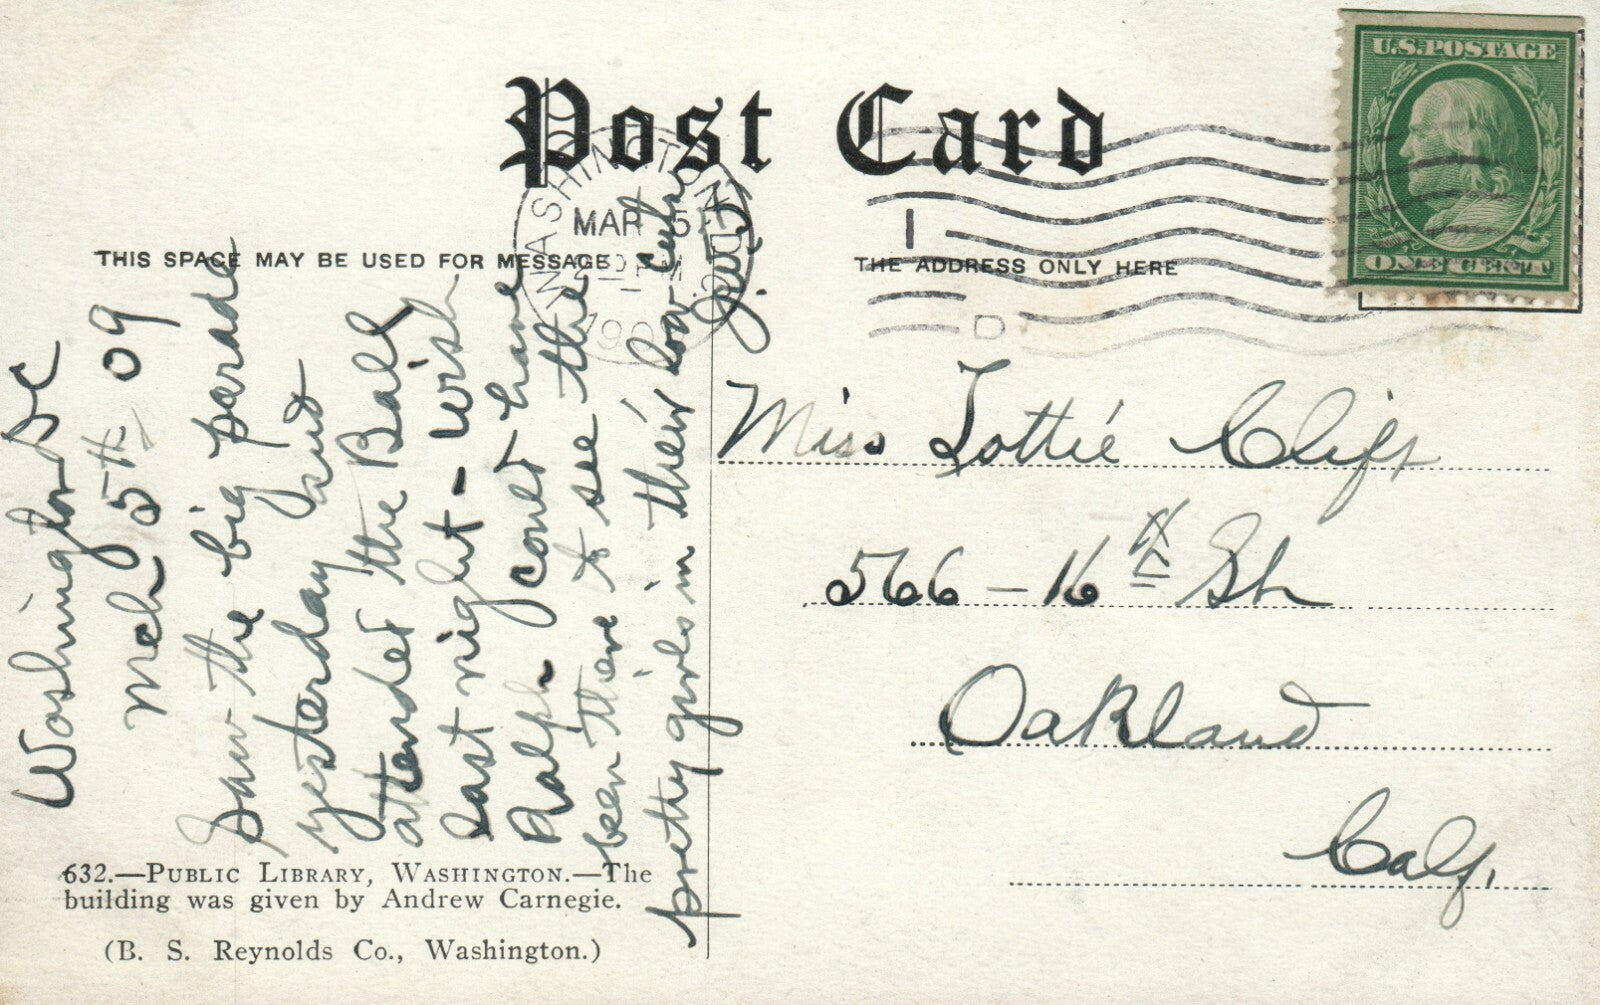 Post Card
U.S. POSTAGE
ONE CENT
WASHINGTON, D.C.
MAR 5
1909
THIS SPACE MAY BE USED FOR MESSAGE
THE ADDRESS ONLY HERE
Washington DC
Mch 5th 09
Saw the big parade
yesterday and
attended the Ball
last night - wish
Ralph could have
been there to see the
pretty girls in their low cuts
Jim
Miss Lottie Clift
566 - 16th St
Oakland
Calf.
632.—PUBLIC LIBRARY, WASHINGTON.—The
building was given by Andrew Carnegie.
(B. S. Reynolds Co., Washington.)